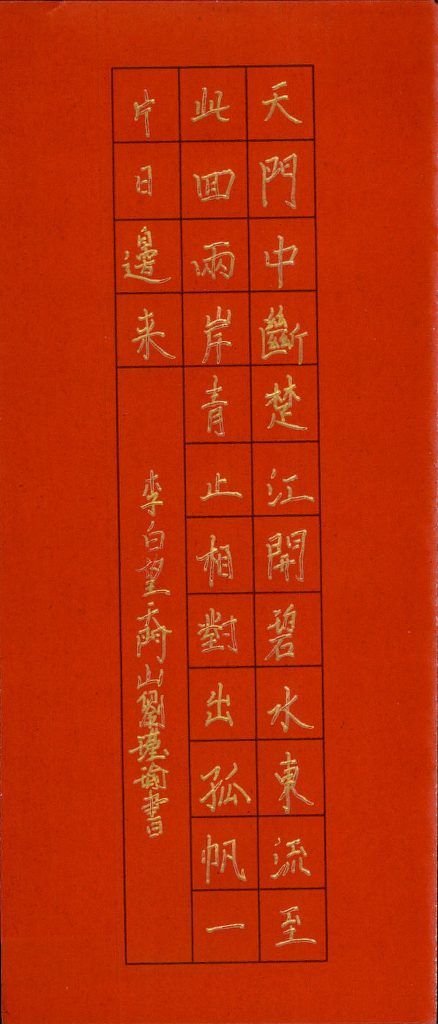 天門中斷楚江開碧水東流至
此回兩岸青止相對出孤帆一
片日邊来
李白望天門山劉瑾瑜書